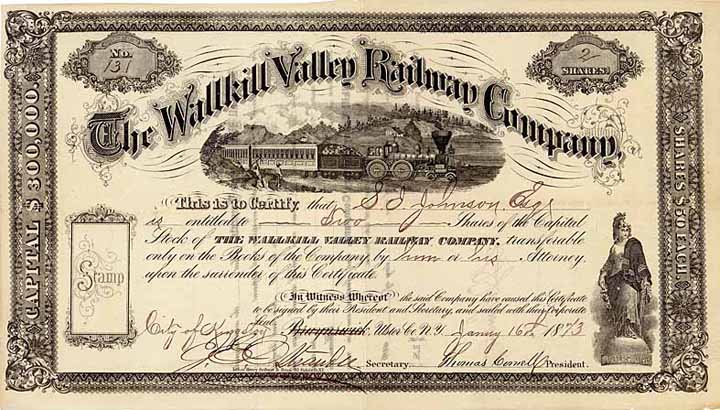 No. 131
2 SHARES
The Wallkill Valley Railway Company.
CAPITAL $300,000.
SHARES $50 EACH
This is to Certify, that S. I. Johnson Esqr
is entitled to Two Shares of the Capital
Stock of THE WALLKILL VALLEY RAILWAY COMPANY, transferable
only on the Books of the Company by him or his Attorney
upon the surrender of this Certificate.
Stamp
In Witness Whereof the said Company have caused this Certificate
to be signed by their President and Secretary, and sealed with their corporate
Seal
City of Kingston Ulster Co. N.Y. Jany 16th 1873
Secretary. Thomas Cornell President.